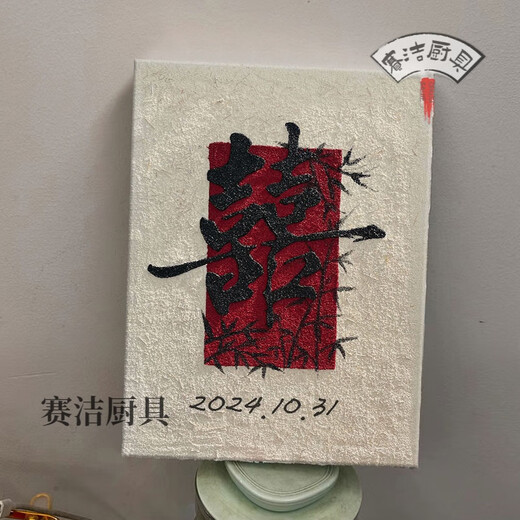 赛洁厨具
囍
赛洁厨具
2024.10.31